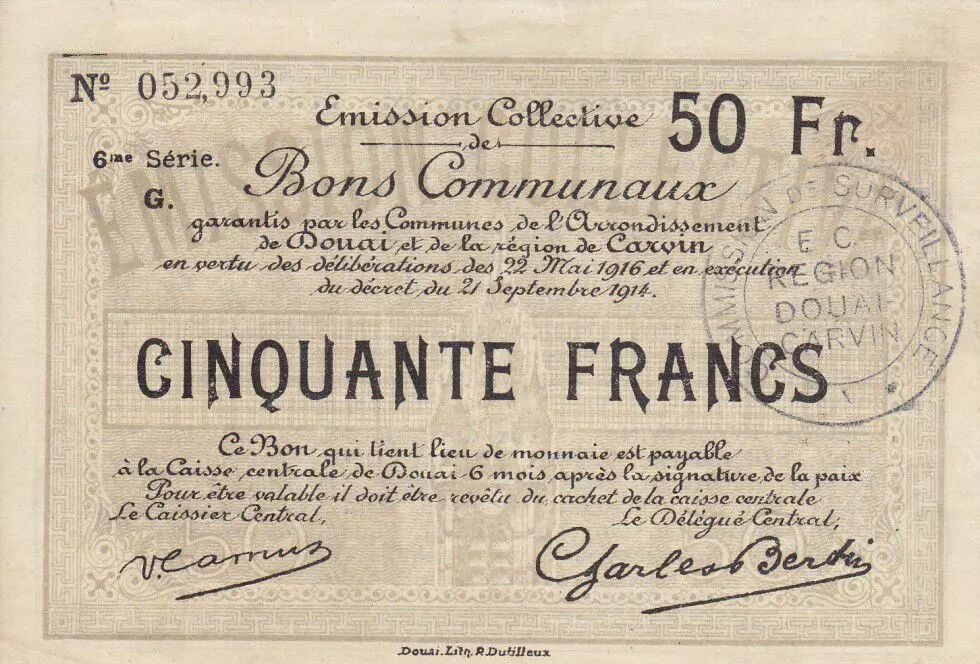 Nº 052,993
Emission Collective
50 Fr.
des
6me Série.
G.
Bons Communaux
garantis par les Communes de l'Arrondissement
de Douai et de la région de Carvin
en vertu des délibérations des 22 Mai 1916 et en exécution
du décret du 21 Septembre 1914.
COMMISSION DE SURVEILLANCE
E. C.
REGION
DOUAI-
CARVIN
EMISSION COLLECTIVE
CINQUANTE FRANCS
Ce Bon qui tient lieu de monnaie est payable
à la Caisse centrale de Douai 6 mois après la signature de la paix
Pour être valable il doit être revêtu du cachet de la caisse centrale
Le Caissier Central,
Le Délégué Central,
V. Camus
Charles Bertin
50
50
Douai. Lith. R. Dutilleux